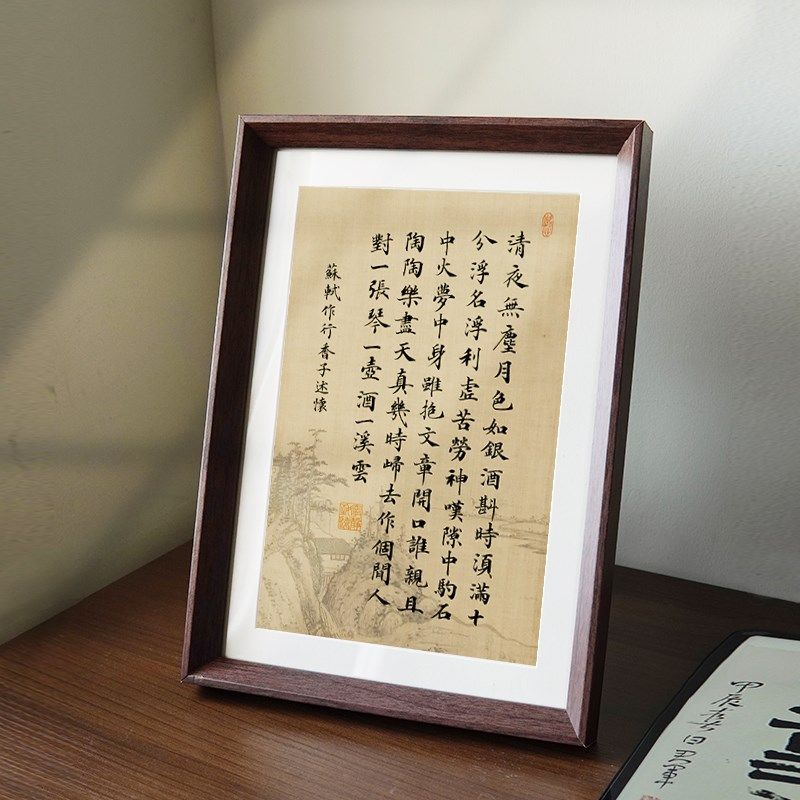 清夜無塵月色如銀酒斟時須滿十
分浮名浮利虛苦勞神嘆隙中駒石
中火夢中身雖抱文章開口誰親且
陶陶樂盡天真幾時歸去作個閒人
對一張琴一壺酒一溪雲
蘇軾作行香子述懷
甲辰